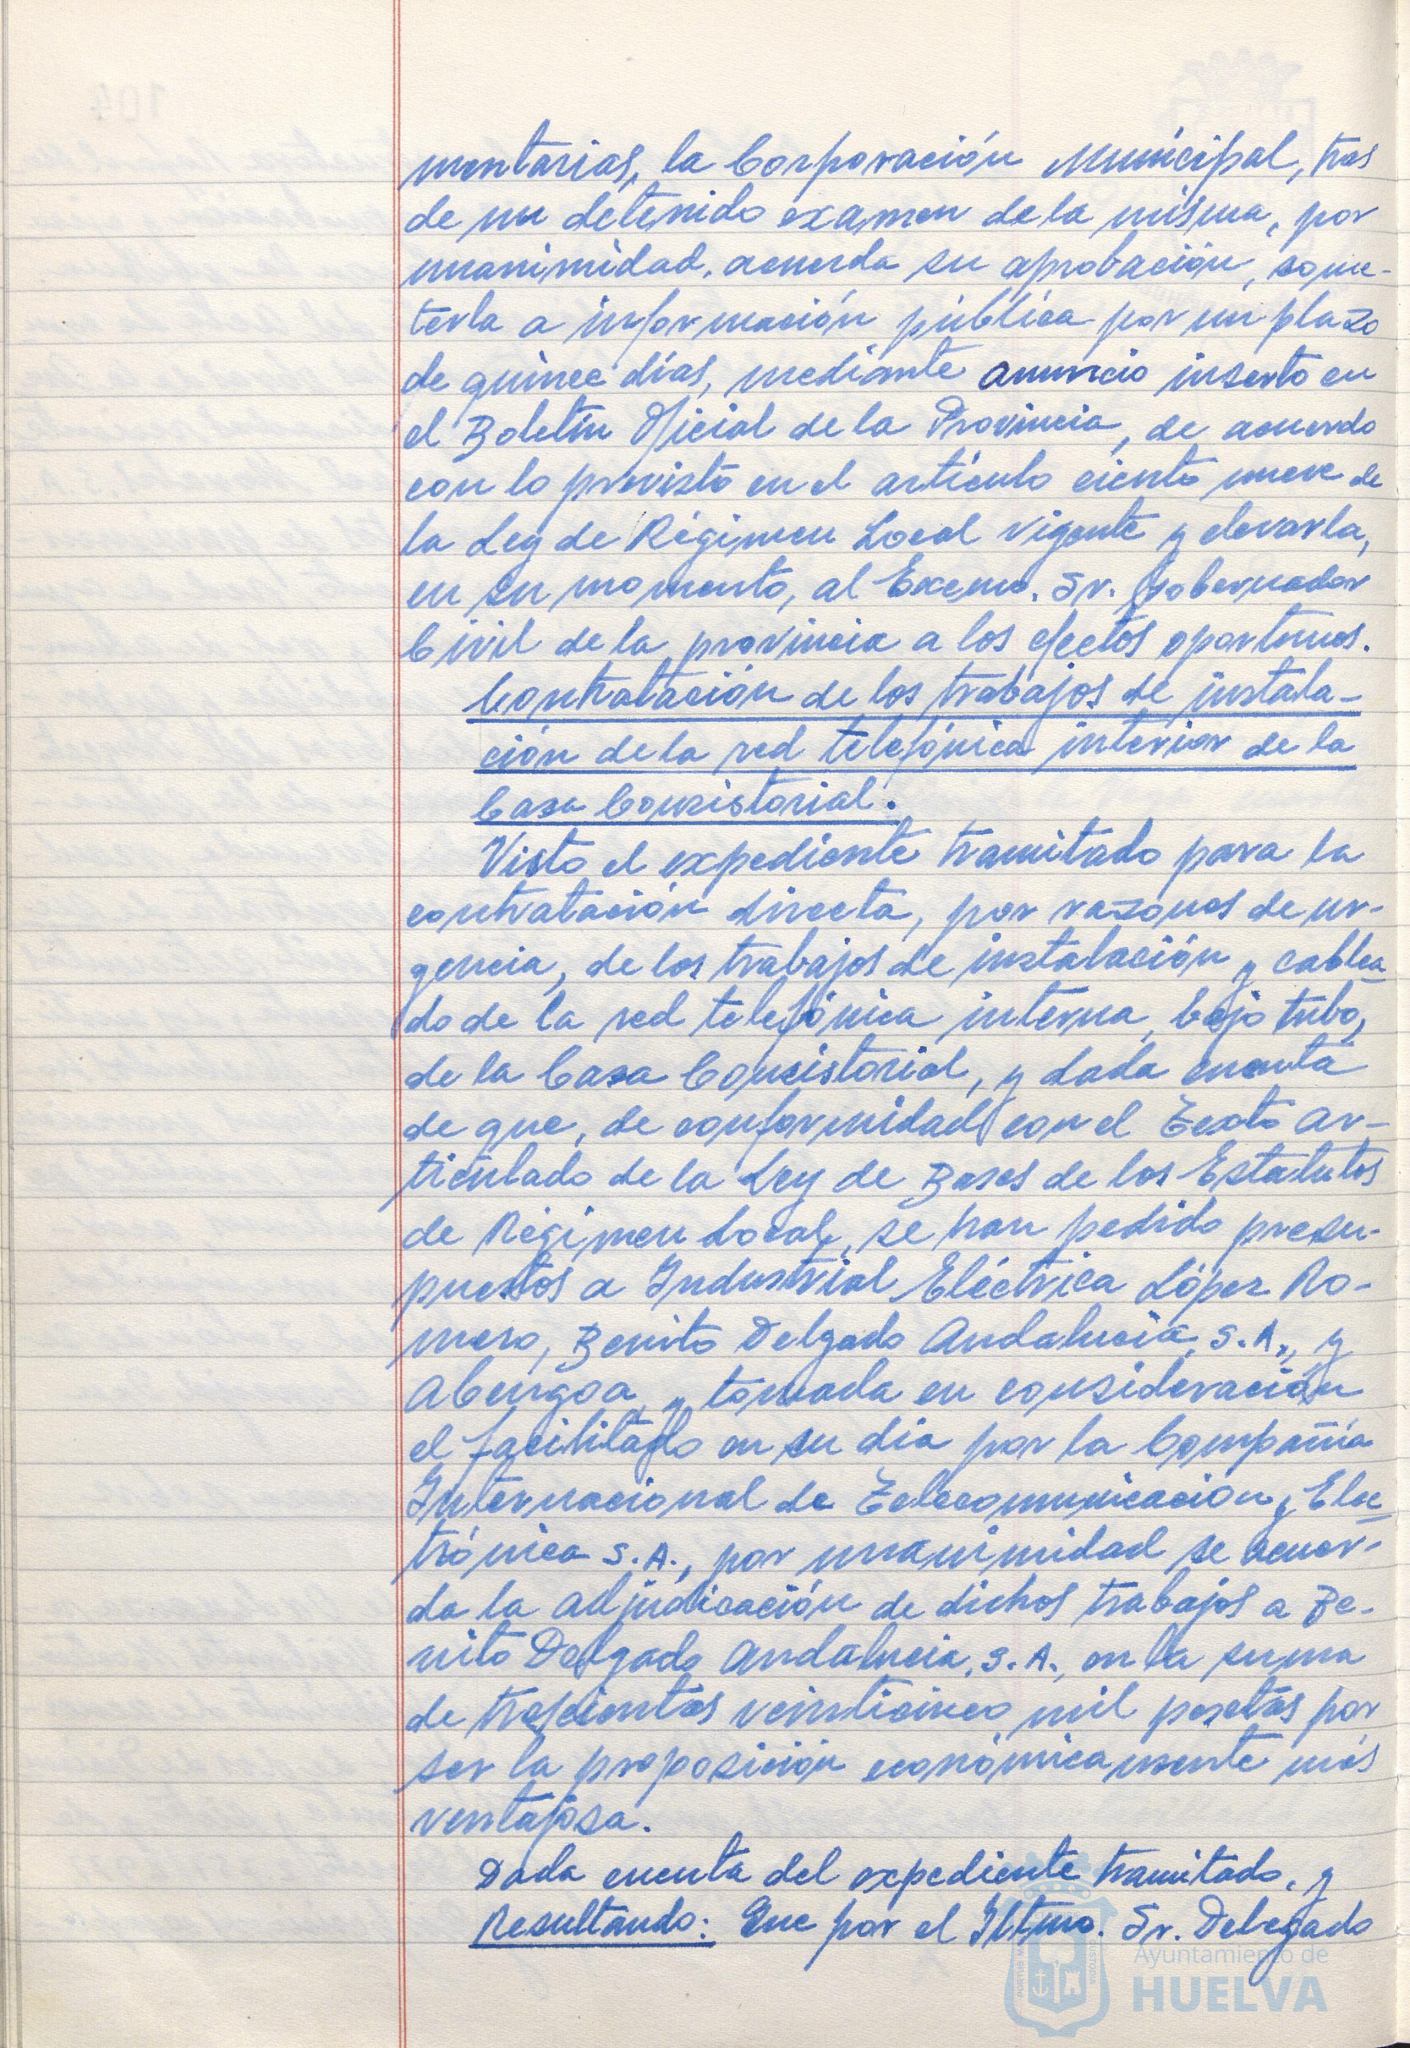 mentarias, la Corporación Municipal, tras
de un detenido examen de la misma, por
unanimidad, acuerda su aprobación, some-
terla a información pública por un plazo
de quince días, mediante anuncio inserto en
el Boletín Oficial de la Provincia, de acuerdo
con lo previsto en el artículo ciento nueve de
la Ley de Régimen Local vigente y elevarla,
en su momento, al Excmo. Sr. Gobernador
Civil de la provincia a los efectos oportunos.
Contratación de los trabajos de instala-
ción de la red telefónica interior de la
Casa Consistorial.
Visto el expediente tramitado para la
contratación directa, por razones de ur-
gencia, de los trabajos de instalación y cablea
do de la red telefónica interna, bajo tubo,
de la Casa Consistorial, y dada cuenta
de que, de conformidad con el Texto ar-
ticulado de la Ley de Bases de los Estatutos
de Régimen Local, se han pedido presu-
puestos a Industrial Eléctrica López Ro-
mero, Benito Delgado Andalucía, S.A., y
Abengoa, y tomada en consideración
el facilitado en su día por la Compañía
Internacional de Telecomunicación y Elec
trónica S.A., por unanimidad se acuer-
da la adjudicación de dichos trabajos a Be-
nito Delgado Andalucía, S.A., en la suma
de trescientas veinticinco mil pesetas por
ser la proposición económicamente más
ventajosa.
Dada cuenta del expediente tramitado, y
Resultando: Que por el Iltmo. Sr. Delegado
Ayuntamiento de
HUELVA
104